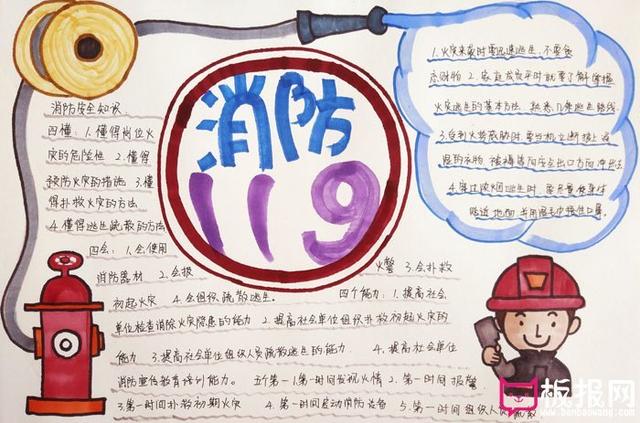 消防
119
消防安全知识
四懂：1.懂得岗位火
灾的危险性 2.懂得
预防火灾的措施 3.懂
得扑救火灾的方法
4.懂得逃生疏散的方法
四会：1.会使用
消防器材 2.会报
火警 3.会扑救
初起火灾 4.会组织疏散逃生。 四个能力：1.提高社会
单位检查消除火灾隐患的能力 2.提高社会单位组织扑救初起火灾的
能力 3.提高社会单位组织人员疏散逃生的能力. 4.提高社会单位
消防宣传教育培训能力。 五个第一 1.第一时间发现火情 2.第一时间报警
3.第一时间扑救初期火灾 4.第一时间启动消防设备 5.第一时间组织人
1.火灾来袭时要迅速逃生，不要贪
恋财物 2.家庭成员平时就要了解掌握
火灾逃生的基本方法，熟悉几条逃生路线
3.受到火势威胁时要当机立断披上浸
湿的衣物、被褥等向安全出口方向冲出去
4.穿过浓烟逃生时，要尽量使身体
贴近地面，并用湿毛巾捂住口鼻。
板报网
www.banbaowang.com